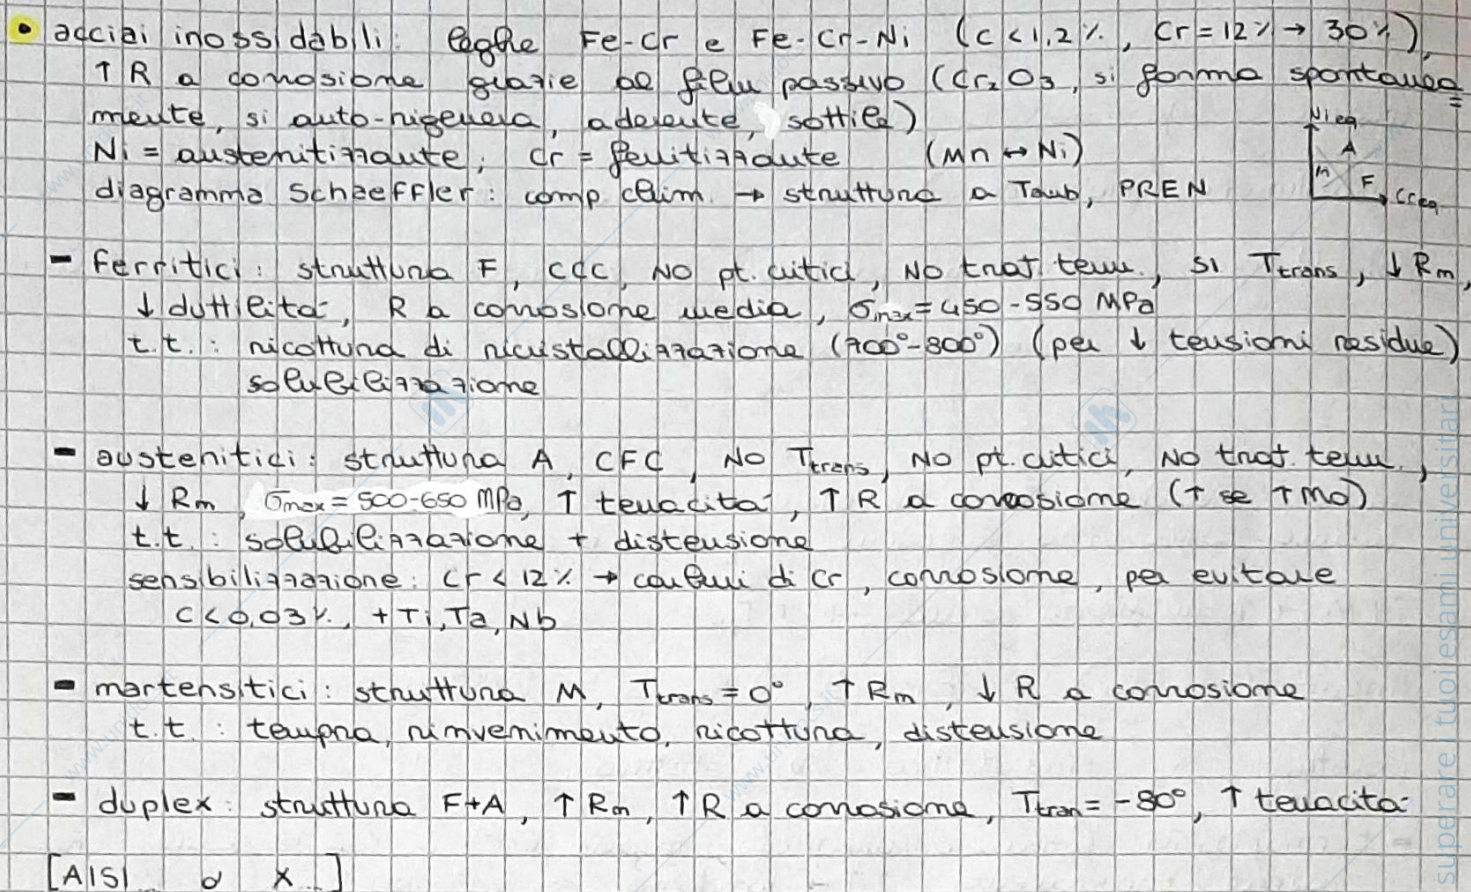 • acciai inossidabili: leghe Fe-Cr e Fe-Cr-Ni (C < 1,2%, Cr = 12% → 30%),
↑ R a corrosione grazie al film passivo (Cr₂O₃, si forma spontanea=
mente, si auto-rigenera, aderente, sottile)
Ni = austenitizzante, Cr = ferritizzante (Mn ↔ Ni)
diagramma Schaeffler: comp. chim. → struttura a Tamb, PREN
Ni eq
A
M
F
Cr eq
- ferritici: struttura F, CCC, NO pt. critici, NO trat. term., SI Ttrans, ↓ Rm,
↓ duttilità, R a corrosione media, σmax = 450-550 MPa
t.t.: ricottura di ricristallizzazione (700°-800°) (per ↓ tensioni residue)
solubilizzazione
- austenitici: struttura A, CFC, NO Ttrans, NO pt. critici, NO trat. term.,
↓ Rm, σmax = 500-650 MPa, ↑ tenacità, ↑ R a corrosione (↑ se ↑ Mo)
t.t.: solubilizzazione + distensione
sensibilizzazione: Cr < 12% → carburi di Cr, corrosione, per evitare
C < 0,03%, + Ti, Ta, Nb
- martensitici: struttura M, Ttrans = 0°, ↑ Rm, ↓ R a corrosione
t.t.: tempra, rinvenimento, ricottura, distensione
- duplex: struttura F+A, ↑ Rm, ↑ R a corrosione, Ttran = -80°, ↑ tenacità
[AISI... o X...]
superare i tuoi esami universitari